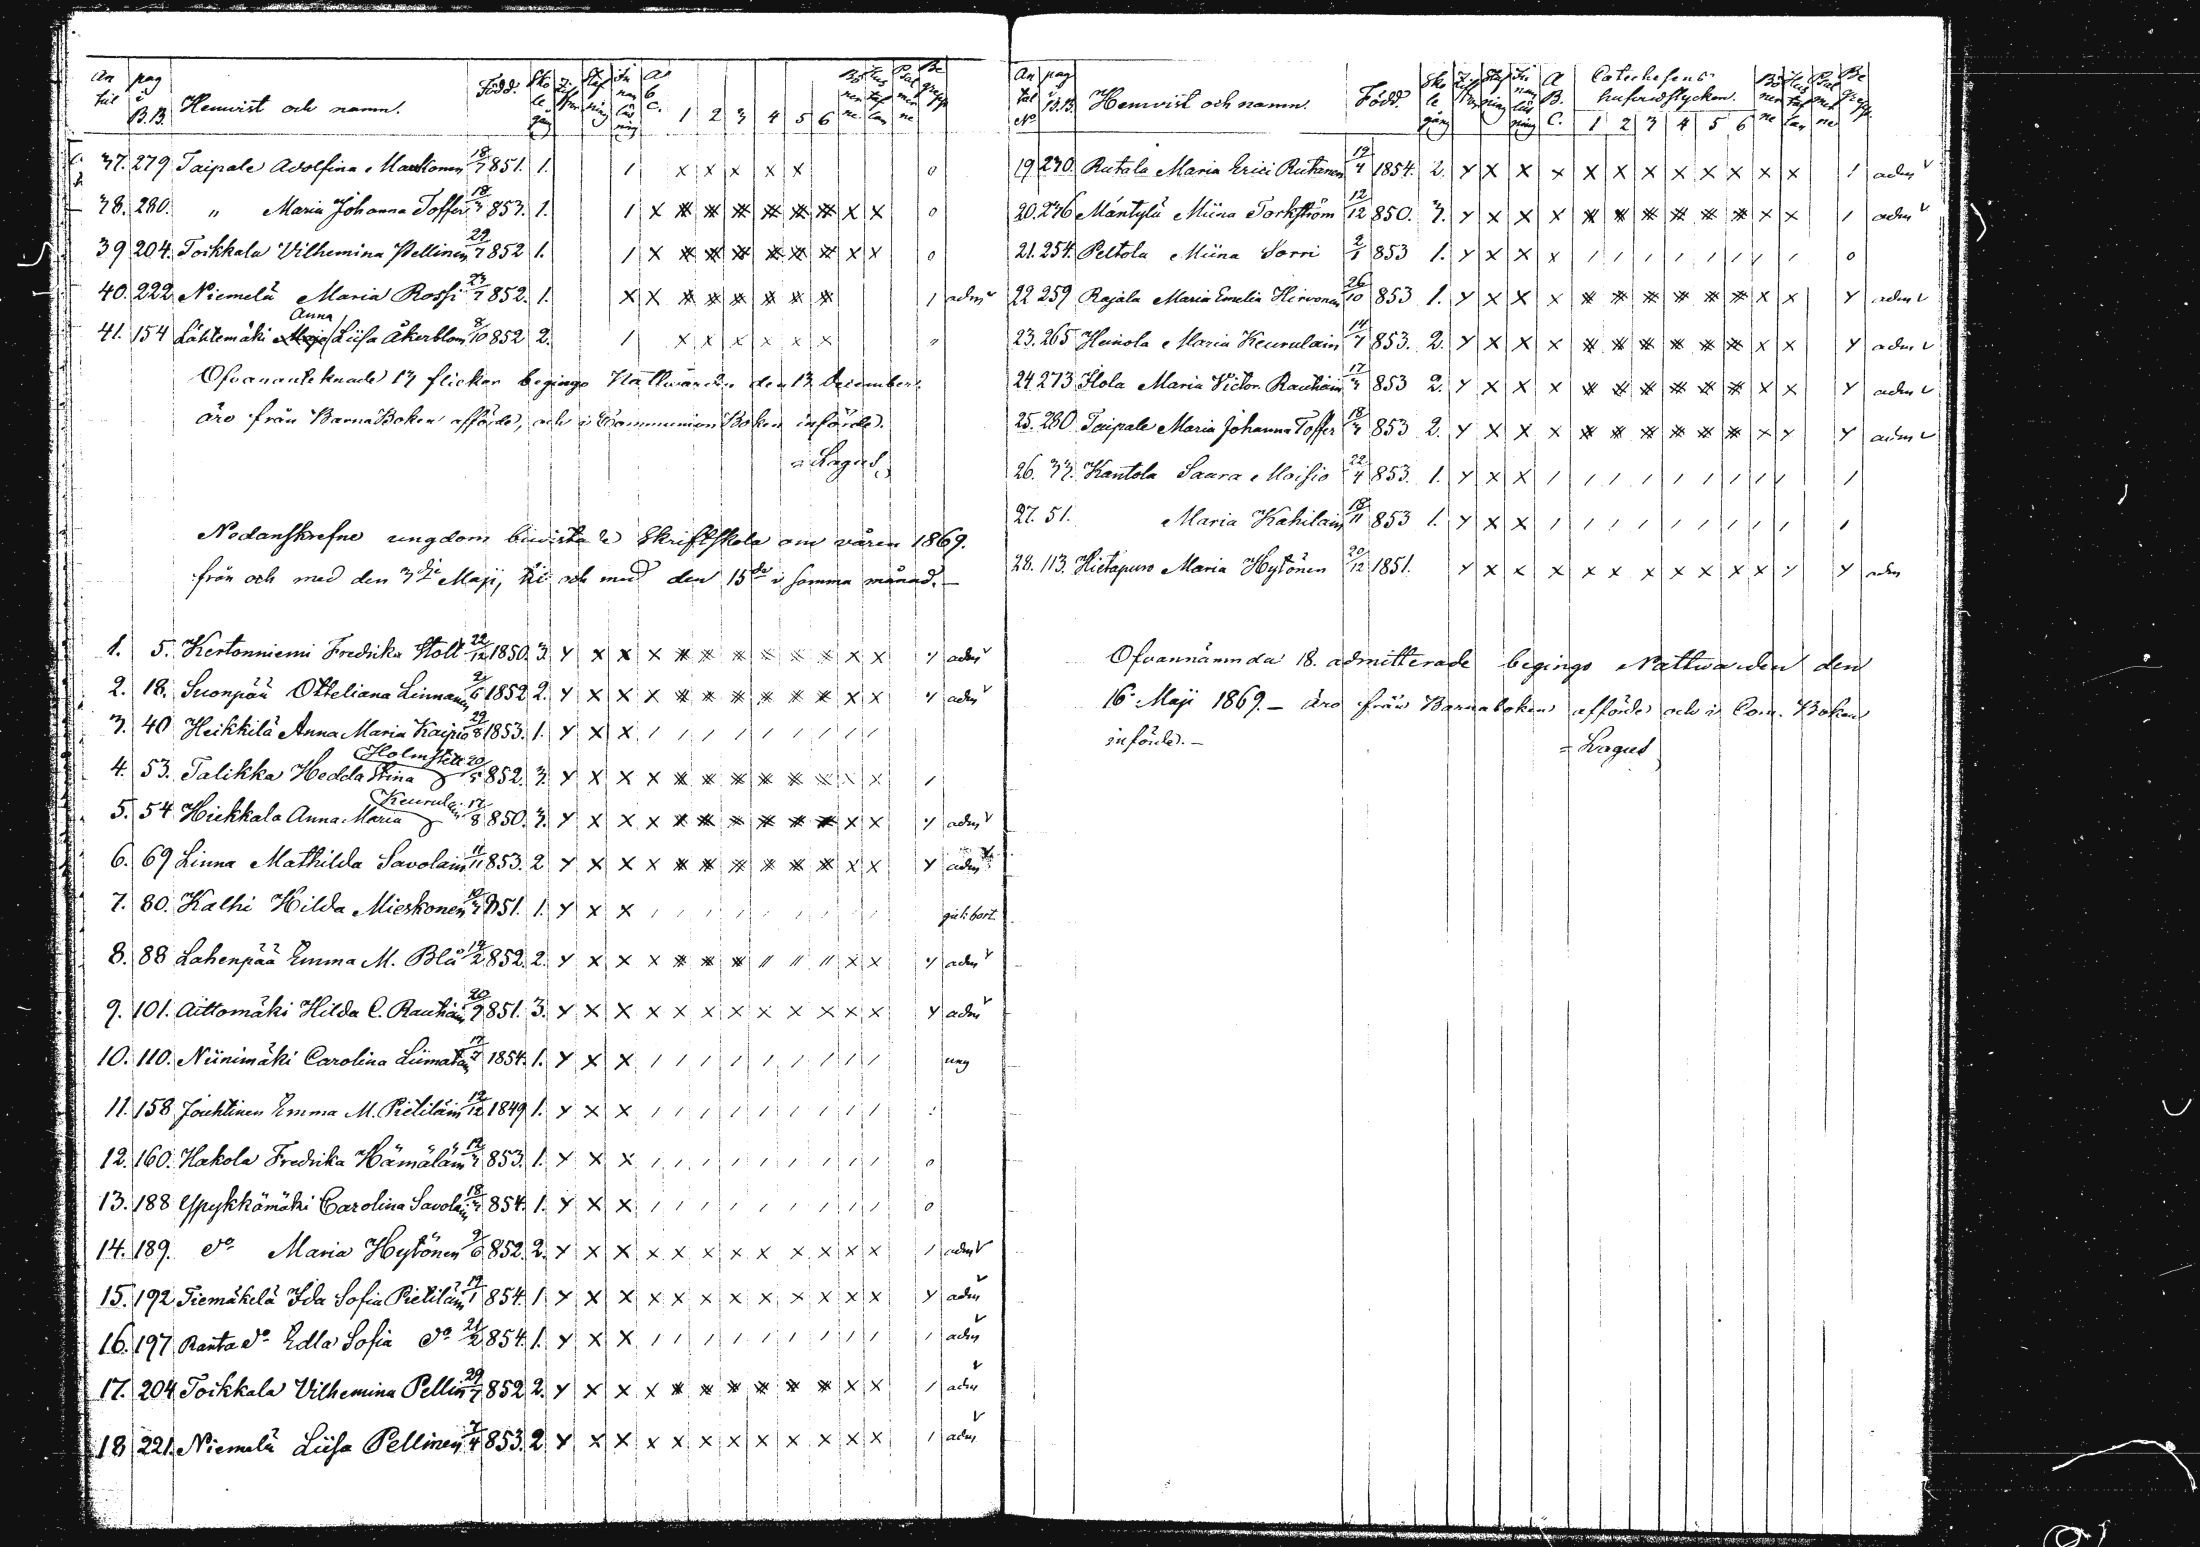 An tal pag i B.B. Hemvist och namn. Född. Sko le gång Zif fror Staf ning In nan läs ning A b c. 1 2 3 4 5 6 Bö ner ne Hus taf lan Psal mer ne Be grepp
37. 279 Taipale Adolfina Mankonen 18/7 851. 1. 1 x x x x x o
38. 280. " Maria Johanna Toffer 18/3 853. 1. 1 x x x x x x x x x o
39 204. Toikkala Vilhemina Pellinen 29/7 852 1. 1 x x x x x x x x x o
40. 222 Niemelä Maria Rossi 27/7 852. 1. x x x x x x x x 1 adm
Anna
41. 154 Lähtemäki Maja Liisa Åkerblom 8/10 852 2. 1 x x x x x x o
Ofvanantecknade 13 flickor begingo Nattwarden den 13 December.
äro från BarnaBoken afförde, och i CommunionBoken införde.
Lagus
Nedanskrefne ungdom biwistade Skriftskola om våren 1869.
från och med den 3dje Maji, till och med den 15de i samma månad.—
1. 5. Kertonniemi Fredrika Stolt 22/12 1850. 3. x x x x x x x x x x x x y adm
2. 18. Suonpää Otteliana Linnanen 21/6 1852 2. x x x x x x x x x x x x y adm
3. 40 Heikkilä Anna Maria Kaipio 29/8 1853. 1. x x x / / / / / / / / /
Holmstell
4. 53. Talikka Hedda Stina 20/5 852. 3. x x x x x x x x x x x x /
Keurulain
5. 54 Hiekkala Anna Maria 17/8 850. 3. x x x x x x x x x x x x y adm
6. 69 Linna Mathilda Savolain 11/11 853. 2 x x x x x x x x x x x x y adm
7. 80. Kalhi Hilda Mieskonen 851. 1. x x x / / / / / / / / / gick bort.
8. 88 Lahenpää Emma M. Blå 14/2 852. 2. x x x x x x x // // // x x y adm
9. 101. Aittomäki Hilda C. Rautiain 20/9 851. 3. x x x x x x x x x x x x y adm
10. 110. Niinimäki Carolina Liimatain 1854. 1. x x x / / / / / / / / / ung
11. 158 Jouhtinen Emma M. Pietiläin 12/12 1849 1. x x x / / / / / / / / /
12. 160. Hakola Fredrika Hämäläin 853. 1. x x x / / / / / / / / / o
13. 188 Ypykkämäki Carolina Savolain 854. 1. x x x / / / / / / / / / o
14. 189. do Maria Hytönen 9/6 852. 2. x x x x x x x x x x x x / adm
15. 192 Tiemäkelä Ida Sofia Pietiläin 854. 1. x x x x x x x x x x x x y adm
16. 197 Ranta do Edla Sofia do 21/2 854. 1. x x x / / / / / / / / / / adm
17. 204 Toikkala Vilhemina Pellin 29/7 852 2. x x x x x x x x x x x x / adm
18 221. Niemelä Liisa Pellinen 7/4 853. 2 x x x x x x x x x x x x / adm
An tal No pag i B.B. Hemvist och namn. Född. Sko le gång Zif fror Staf ning In nan läs ning A. B. C. Catechesens hufvudstycken. 1 2 3 4 5 6 Bö ner ne Hus taf lan Psal mer ne Be grepp.
19 230. Rutala Maria Erici Rutanen 19/4 1854. 2. x x x x x x x x x x x x 1 adm
20. 236 Mäntylä Miina Torkström 12/12 850. 3. x x x x x x x x x x x x 1 adm
21. 254. Peltola Miina Sorri 2/1 853 1. x x x x / / / / / / / / o
22 259 Rajala Maria Emelia Hirvonen 26/10 853 1. x x x x x x x x x x x x y adm
23. 265 Heinola Maria Keurulain 14/7 853. 2. x x x x x x x x x x x x y adm
24. 273 Ilola Maria Victor. Rautiain 17/3 853 2. x x x x x x x x x x x x y adm
25. 280 Taipale Maria Johanna Toffer 18/3 853 2. x x x x x x x x x x x x y adm
26. 33. Kantola Saara Moisio 22/4 853. 1. x x x / / / / / / / / / /
27. 51. Maria Kahilain 18/11 853 1. x x x / / / / / / / / / /
28. 113. Hietapuro Maria Hytönen 20/12 1851. x x x x x x x x x x x x y adm
Ofvannämnda 18. admitterade begingo Nattwarden den
16 Maji 1869.— äro från Barnaboken afförde och i Com. Boken
införde.—
Lagus